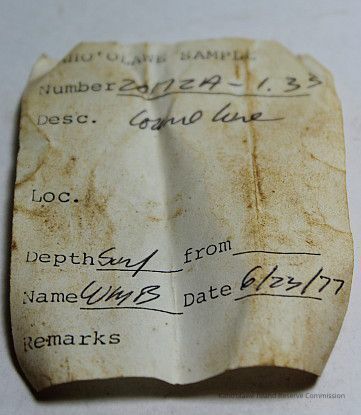 AHO'OLAWE SAMPLE
Number 20M2A - 1.33
Desc. Cowrie Lure
Loc.
Depth Surf from
Name WMB Date 6/23/77
Remarks
Kaho'olawe Island Reserve Commission